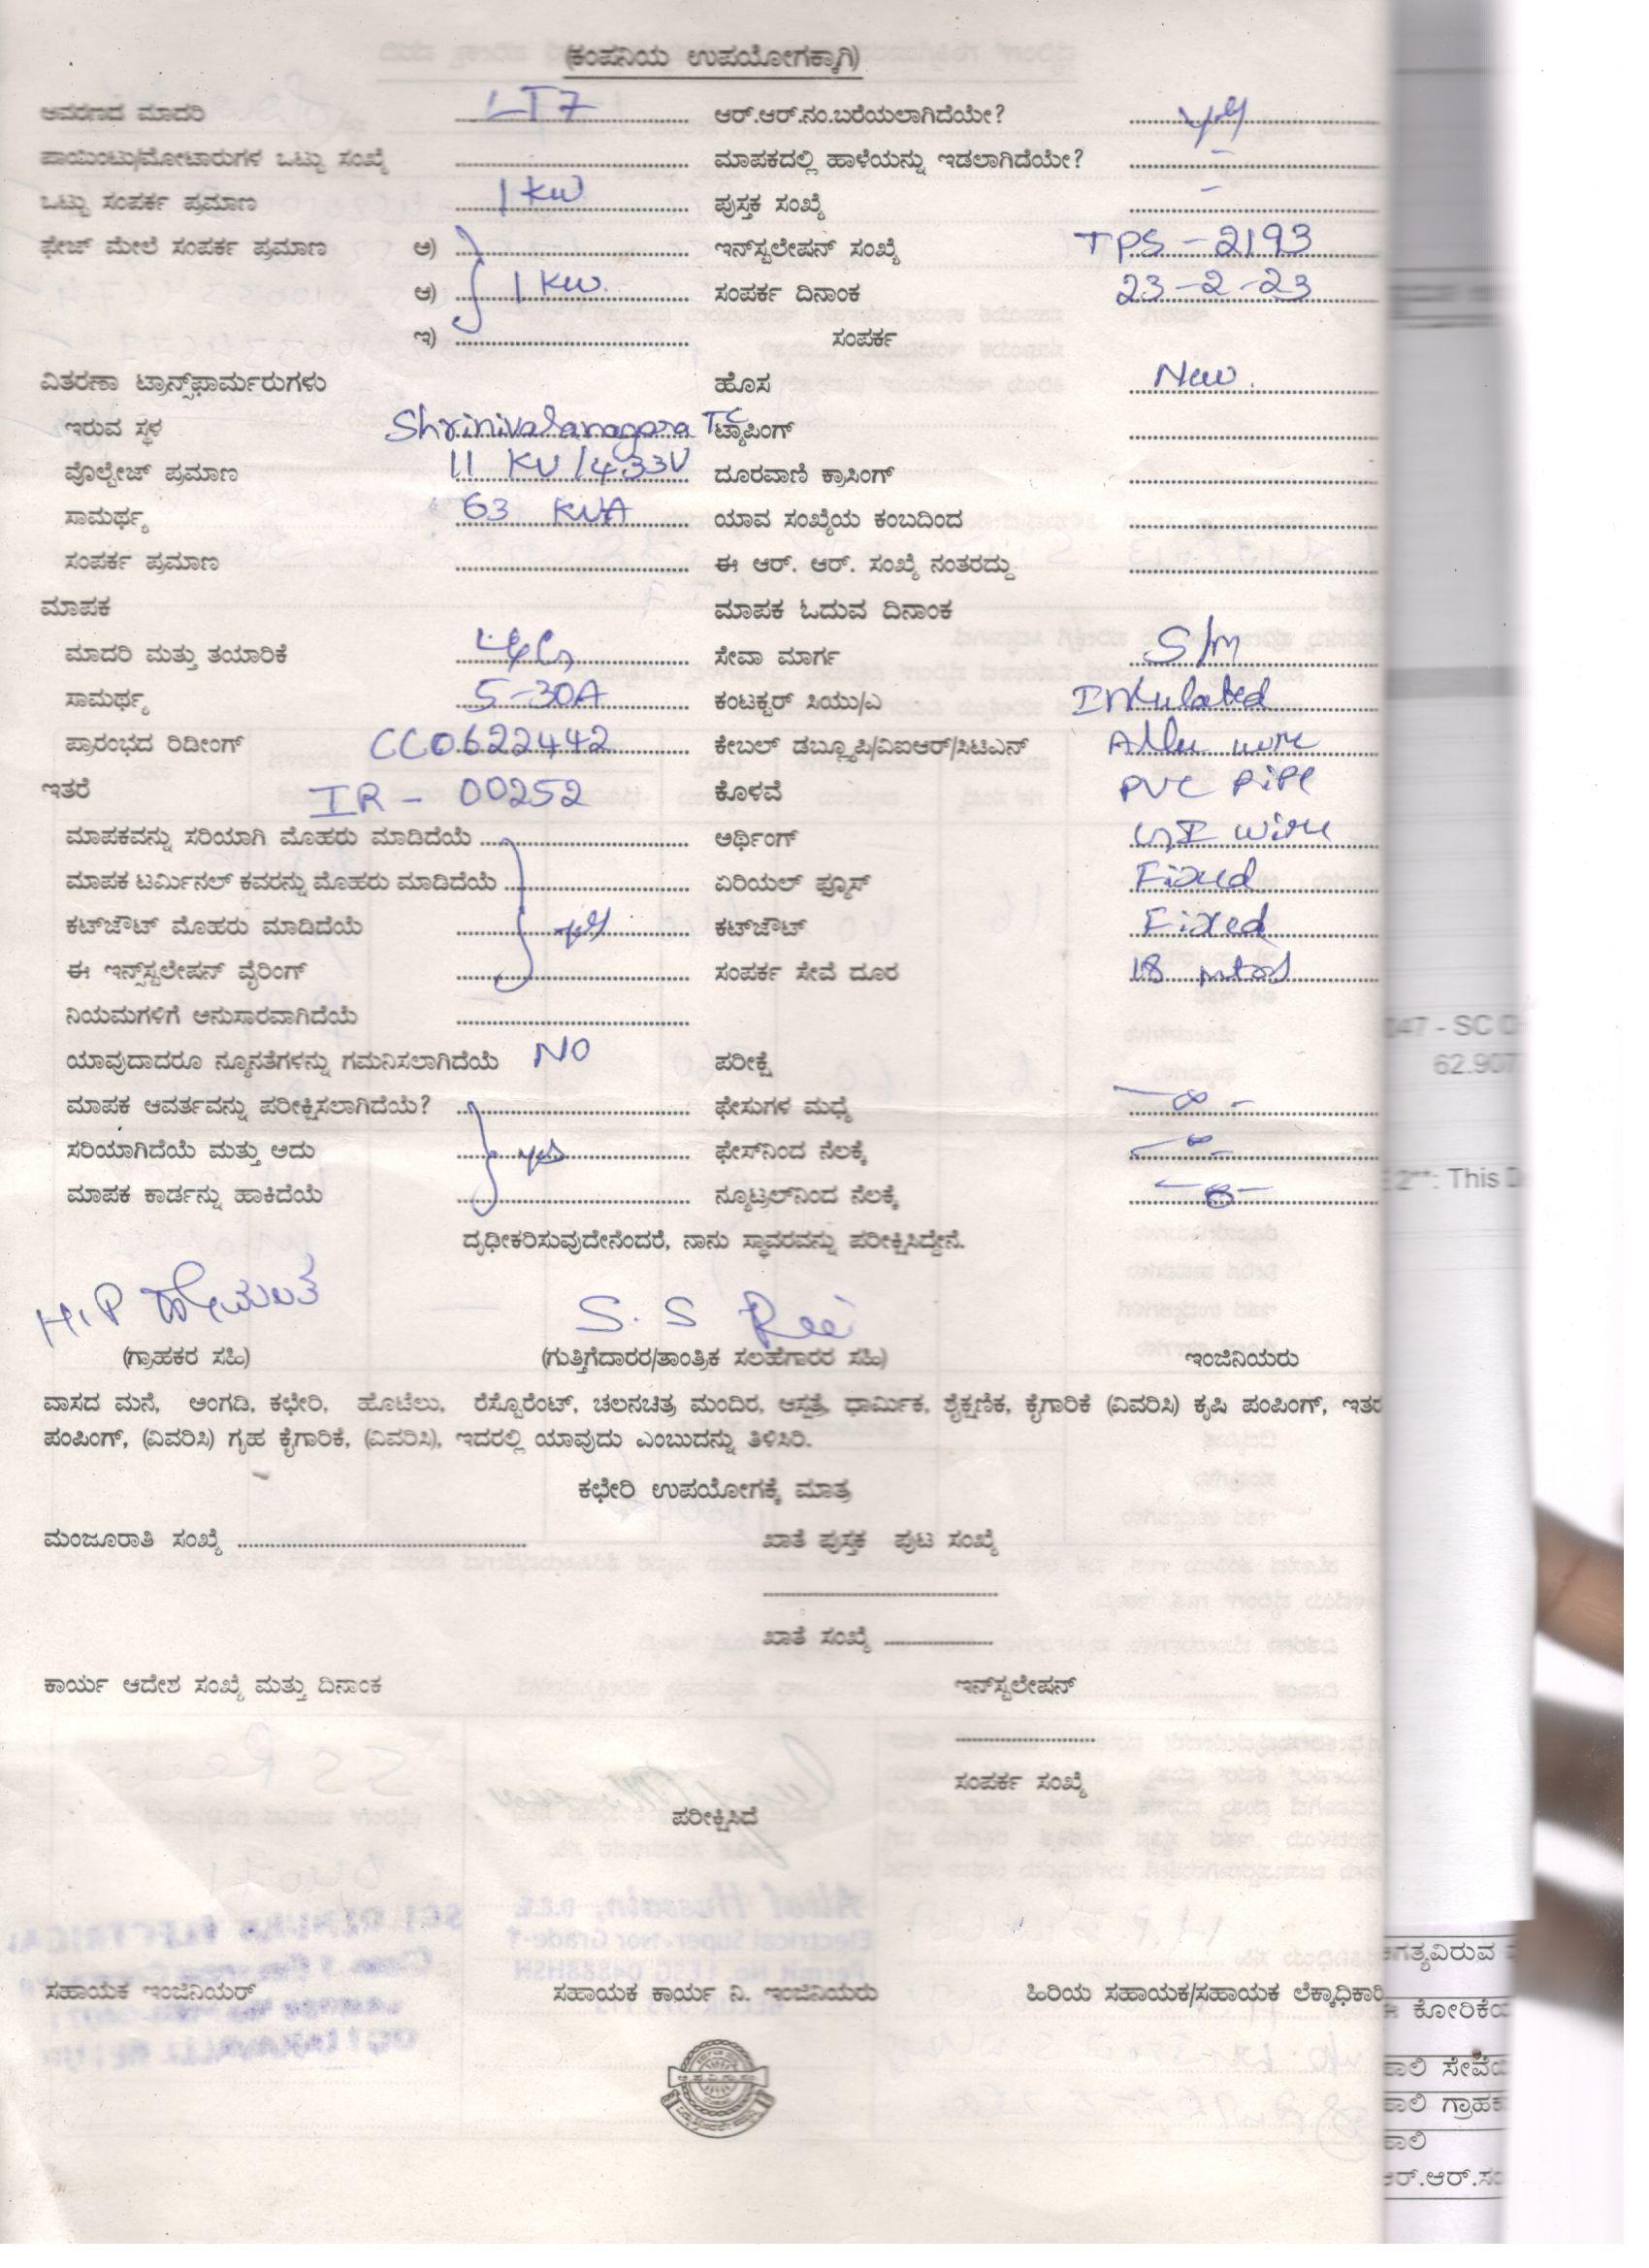 (ಕಂಪನಿಯ ಉಪಯೋಗಕ್ಕಾಗಿ)
ಆವರಣದ ಮಾದರಿ LT7 ಆರ್.ಆರ್.ನಂ.ಬರೆಯಲಾಗಿದೆಯೇ? yes
ಪಾಯಿಂಟು/ಮೋಟಾರುಗಳ ಒಟ್ಟು ಸಂಖ್ಯೆ ಮಾಪಕದಲ್ಲಿ ಹಾಳೆಯನ್ನು ಇಡಲಾಗಿದೆಯೇ? -
ಒಟ್ಟು ಸಂಪರ್ಕ ಪ್ರಮಾಣ 1 KW ಪುಸ್ತಕ ಸಂಖ್ಯೆ -
ಫೇಜ್ ಮೇಲೆ ಸಂಪರ್ಕ ಪ್ರಮಾಣ ಅ) ಇನ್‌ಸ್ಟಲೇಷನ್ ಸಂಖ್ಯೆ TPS-2193
ಆ) 1 KW. ಸಂಪರ್ಕ ದಿನಾಂಕ 23-2-23
ಇ) ಸಂಪರ್ಕ
ವಿತರಣಾ ಟ್ರಾನ್ಸ್‌ಫಾರ್ಮರುಗಳು ಹೊಸ New.
ಇರುವ ಸ್ಥಳ Shrinivasanagara TC ಟ್ಯಾಪಿಂಗ್
ವೊಲ್ಟೇಜ್ ಪ್ರಮಾಣ 11 KV/433V ದೂರವಾಣಿ ಕ್ರಾಸಿಂಗ್
ಸಾಮರ್ಥ್ಯ 63 KVA ಯಾವ ಸಂಖ್ಯೆಯ ಕಂಬದಿಂದ
ಸಂಪರ್ಕ ಪ್ರಮಾಣ ಈ ಆರ್. ಆರ್. ಸಂಖ್ಯೆ ನಂತರದ್ದು
ಮಾಪಕ ಮಾಪಕ ಓದುವ ದಿನಾಂಕ
ಮಾದರಿ ಮತ್ತು ತಯಾರಿಕೆ L&G ಸೇವಾ ಮಾರ್ಗ S/M
ಸಾಮರ್ಥ್ಯ 5-30A ಕಂಟಕ್ಟರ್ ಸಿಯು/ಎ Insulated
ಪ್ರಾರಂಭದ ರಿಡೀಂಗ್ CC0622442 ಕೇಬಲ್ ಡಬ್ಲ್ಯೂಪಿ/ವಿಐಆರ್/ಸಿಟಿಎನ್ Allu wire
ಇತರೆ IR - 00252 ಕೊಳವೆ PVC PiPe
ಮಾಪಕವನ್ನು ಸರಿಯಾಗಿ ಮೊಹರು ಮಾಡಿದೆಯೆ ಅರ್ಥಿಂಗ್ GI wire
ಮಾಪಕ ಟರ್ಮಿನಲ್ ಕವರನ್ನು ಮೊಹರು ಮಾಡಿದೆಯೆ ಏರಿಯಲ್ ಫ್ಯೂಸ್ Fixed
ಕಟ್‌ಔಟ್ ಮೊಹರು ಮಾಡಿದೆಯೆ yes ಕಟ್‌ಔಟ್ Fixed
ಈ ಇನ್ಸ್‌ಸ್ಟಲೇಷನ್ ವೈರಿಂಗ್ ಸಂಪರ್ಕ ಸೇವೆ ದೂರ 18 mtrs
ನಿಯಮಗಳಿಗೆ ಅನುಸಾರವಾಗಿದೆಯೆ
ಯಾವುದಾದರೂ ನ್ಯೂನತೆಗಳನ್ನು ಗಮನಿಸಲಾಗಿದೆಯೆ NO ಪರೀಕ್ಷೆ
ಮಾಪಕ ಆವರ್ತವನ್ನು ಪರೀಕ್ಷಿಸಲಾಗಿದೆಯೆ? ಫೇಸುಗಳ ಮಧ್ಯೆ -∞-
ಸರಿಯಾಗಿದೆಯೆ ಮತ್ತು ಅದು yes ಫೇಸ್‌ನಿಂದ ನೆಲಕ್ಕೆ -∞-
ಮಾಪಕ ಕಾರ್ಡನ್ನು ಹಾಕಿದೆಯೆ ನ್ಯೂಟ್ರಲ್‌ನಿಂದ ನೆಲಕ್ಕೆ
ದೃಢೀಕರಿಸುವುದೇನೆಂದರೆ, ನಾನು ಸ್ಥಾವರವನ್ನು ಪರೀಕ್ಷಿಸಿದ್ದೇನೆ.
H.P ಹೇಮಂತ S. S
(ಗ್ರಾಹಕರ ಸಹಿ) (ಗುತ್ತಿಗೆದಾರರ/ತಾಂತ್ರಿಕ ಸಲಹೆಗಾರರ ಸಹಿ) ಇಂಜಿನಿಯರು
ವಾಸದ ಮನೆ, ಅಂಗಡಿ, ಕಛೇರಿ, ಹೊಟೆಲು, ರೆಸ್ಟೊರೆಂಟ್, ಚಲನಚಿತ್ರ ಮಂದಿರ, ಆಸ್ಪತ್ರೆ, ಧಾರ್ಮಿಕ, ಶೈಕ್ಷಣಿಕ, ಕೈಗಾರಿಕೆ (ವಿವರಿಸಿ) ಕೃಷಿ ಪಂಪಿಂಗ್, ಇತರ
ಪಂಪಿಂಗ್, (ವಿವರಿಸಿ) ಗೃಹ ಕೈಗಾರಿಕೆ, (ವಿವರಿಸಿ), ಇದರಲ್ಲಿ ಯಾವುದು ಎಂಬುದನ್ನು ತಿಳಿಸಿರಿ.
ಕಛೇರಿ ಉಪಯೋಗಕ್ಕೆ ಮಾತ್ರ
ಮಂಜೂರಾತಿ ಸಂಖ್ಯೆ ಖಾತೆ ಪುಸ್ತಕ ಪುಟ ಸಂಖ್ಯೆ
ಖಾತೆ ಸಂಖ್ಯೆ
ಕಾರ್ಯ ಆದೇಶ ಸಂಖ್ಯೆ ಮತ್ತು ದಿನಾಂಕ ಇನ್‌ಸ್ಟಲೇಷನ್
ಸಂಪರ್ಕ ಸಂಖ್ಯೆ
ಪರೀಕ್ಷಿಸಿದೆ
ಸಹಾಯಕ ಇಂಜಿನಿಯರ್ ಸಹಾಯಕ ಕಾರ್ಯ ನಿ. ಇಂಜಿನಿಯರು ಹಿರಿಯ ಸಹಾಯಕ/ಸಹಾಯಕ ಲೆಕ್ಕಾಧಿಕಾರಿ
047 - SC
62.907
2**: This
ಅಗತ್ಯವಿರುವ
ಈ ಕೋರಿಕೆಯ
ಹಾಲಿ ಸೇವೆಯ
ಹಾಲಿ ಗ್ರಾಹಕ
ಹಾಲಿ
ಆರ್.ಆರ್.ಸಂ